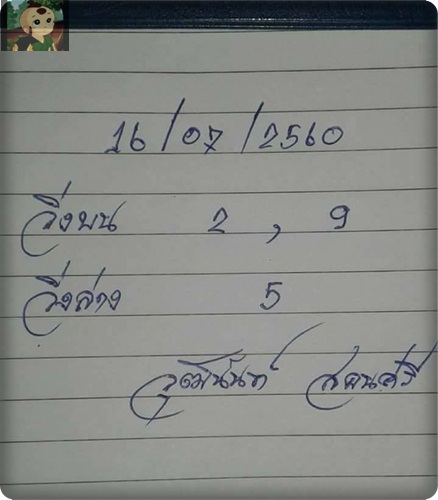 16/07/2560
วิ่งบน 2 , 9
วิ่งล่าง 5
วุฒินันท์